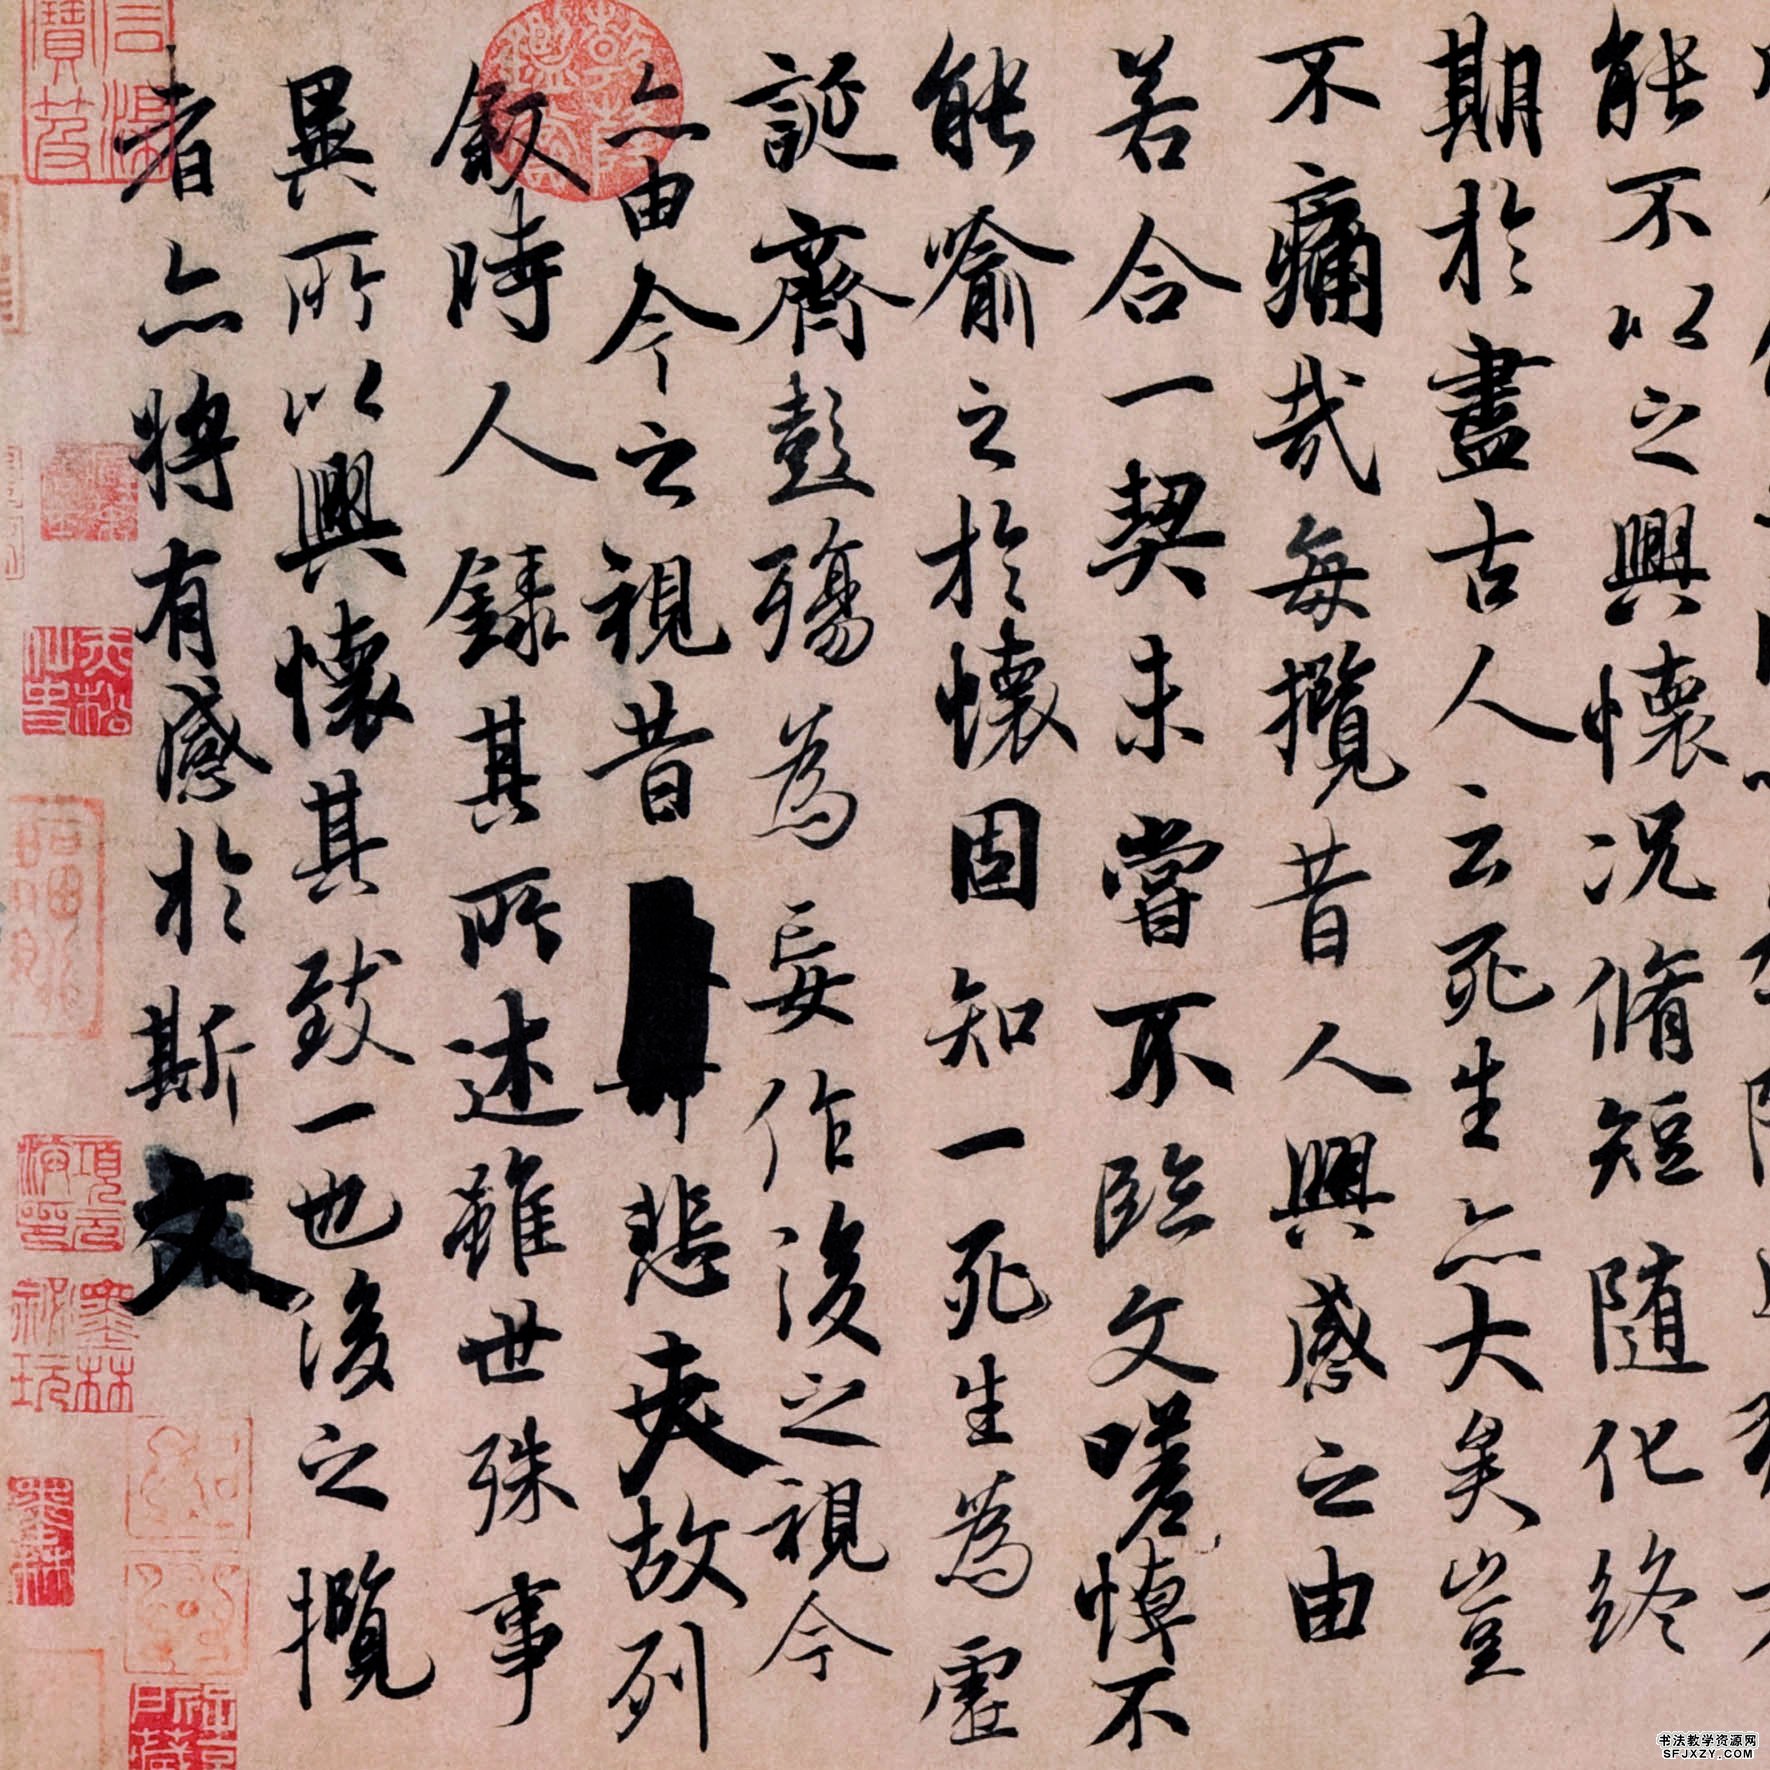 能不以之興懷況脩短随化終
期於盡古人云死生亦大矣豈
不痛哉每攬昔人興感之由
若合一契未嘗不臨文嗟悼不
能喻之於懷固知一死生為虛
誕齊彭殤為妄作後之視今
亦由今之視昔悲夫故列
叙時人錄其所述雖世殊事
異所以興懷其致一也後之攬
者亦將有感於斯文
項元汴印
墨林秘玩
书法教学资源网
SFJXZY.COM